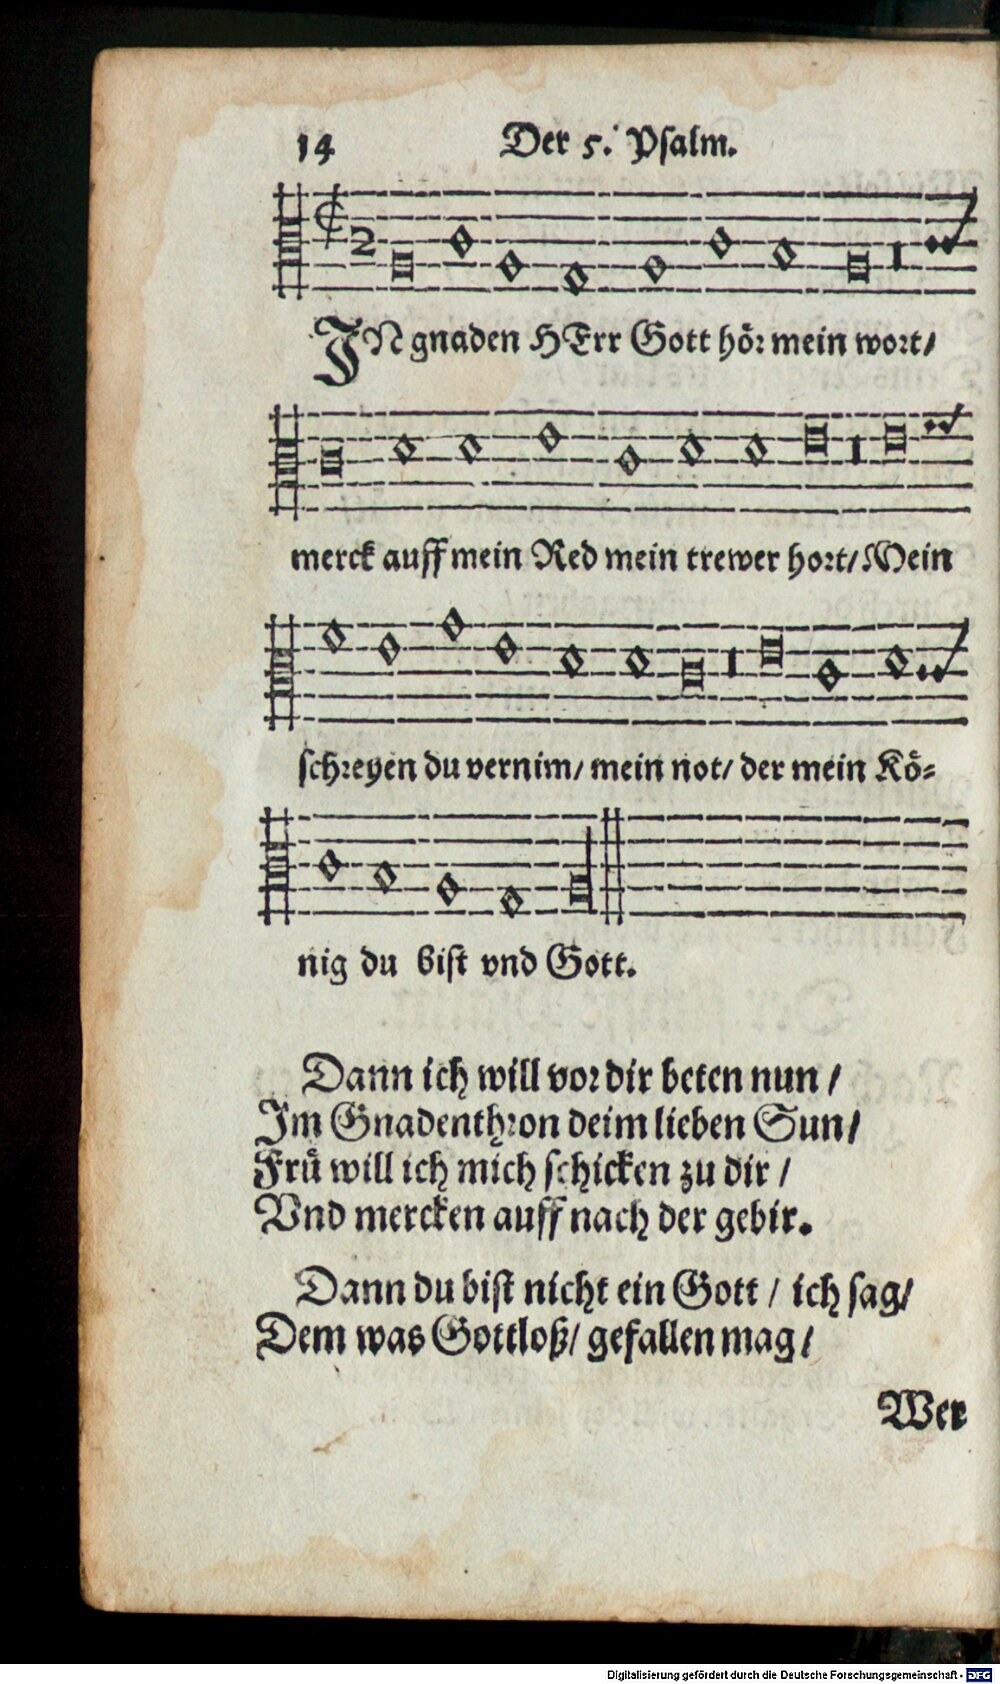 14 Der 5. Psalm.
IN gnaden HErr Gott hör mein wort/
merck auff mein Red mein trewer hort/ Mein
schreyen du vernim/ mein not/ der mein Kö-
nig du bist vnd Gott.
Dann ich will vor dir beten nun /
Im Gnadenthron deim lieben Sun/
Frü will ich mich schicken zu dir /
Vnd mercken auff nach der gebir.
Dann du bist nicht ein Gott / ich sag/
Dem was Gottloß/ gefallen mag/
Wer
Digitalisierung gefördert durch die Deutsche Forschungsgemeinschaft - DFG